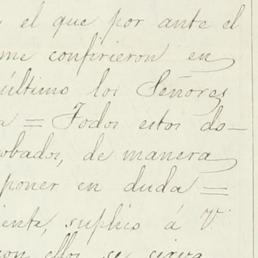 el que por ante el
me confirieron en
último los Señores
a = Todos estos do-
obados, de manera
poner en duda =
ienta, suplico á V
con ellos se sirva